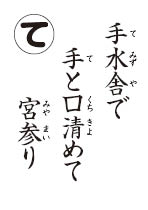 て
手水舎で
てみずや
手と口清めて
て くち きよ
宮参り
みや まい